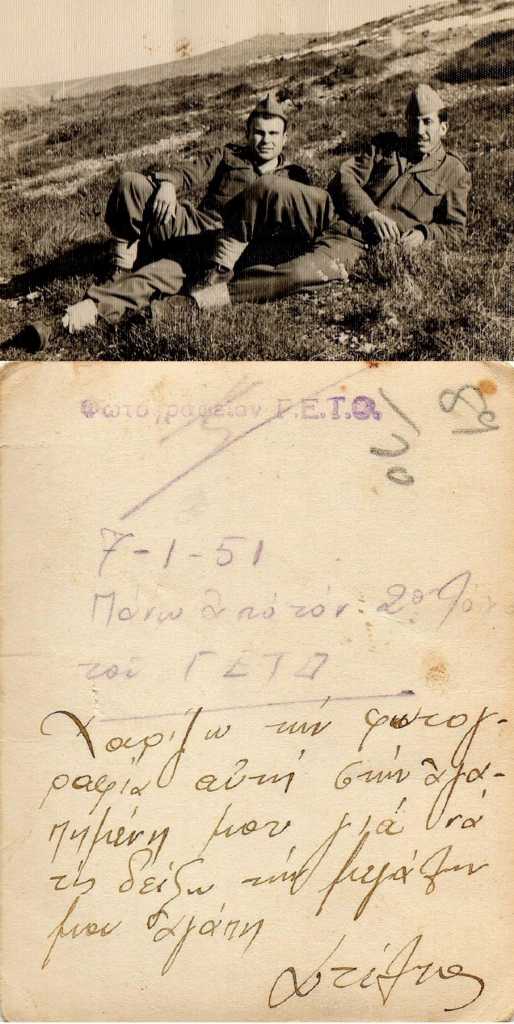 Φωτογραφείον Γ.Ε.Τ.Ο.
7-1-51
Πάνω ἀπό τόν 2ον
τοῦ Γ Ε Τ Ο
Χαρίζω τήν φωτογ-
ραφία αὐτή στήν ἀγα-
πημένη μου γιά νά
τῆς δείξω τήν μεγάλην
μου ἀγάπη
Στέλιος